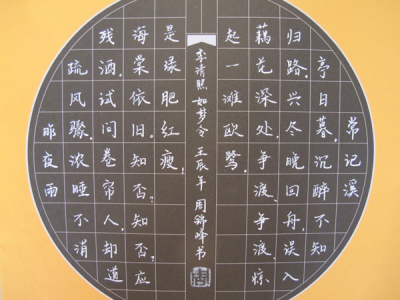 常记溪
亭日暮，沉醉不知
归路。兴尽晚回舟，误入
藕花深处。争渡，争渡，惊
起一滩欧鹭。
李清照 如梦令 壬辰年 周锦峰书
昨夜雨
疏风骤，浓睡不消
残酒。试问卷帘人，却道
海棠依旧。知否？知否？应
是绿肥红瘦。